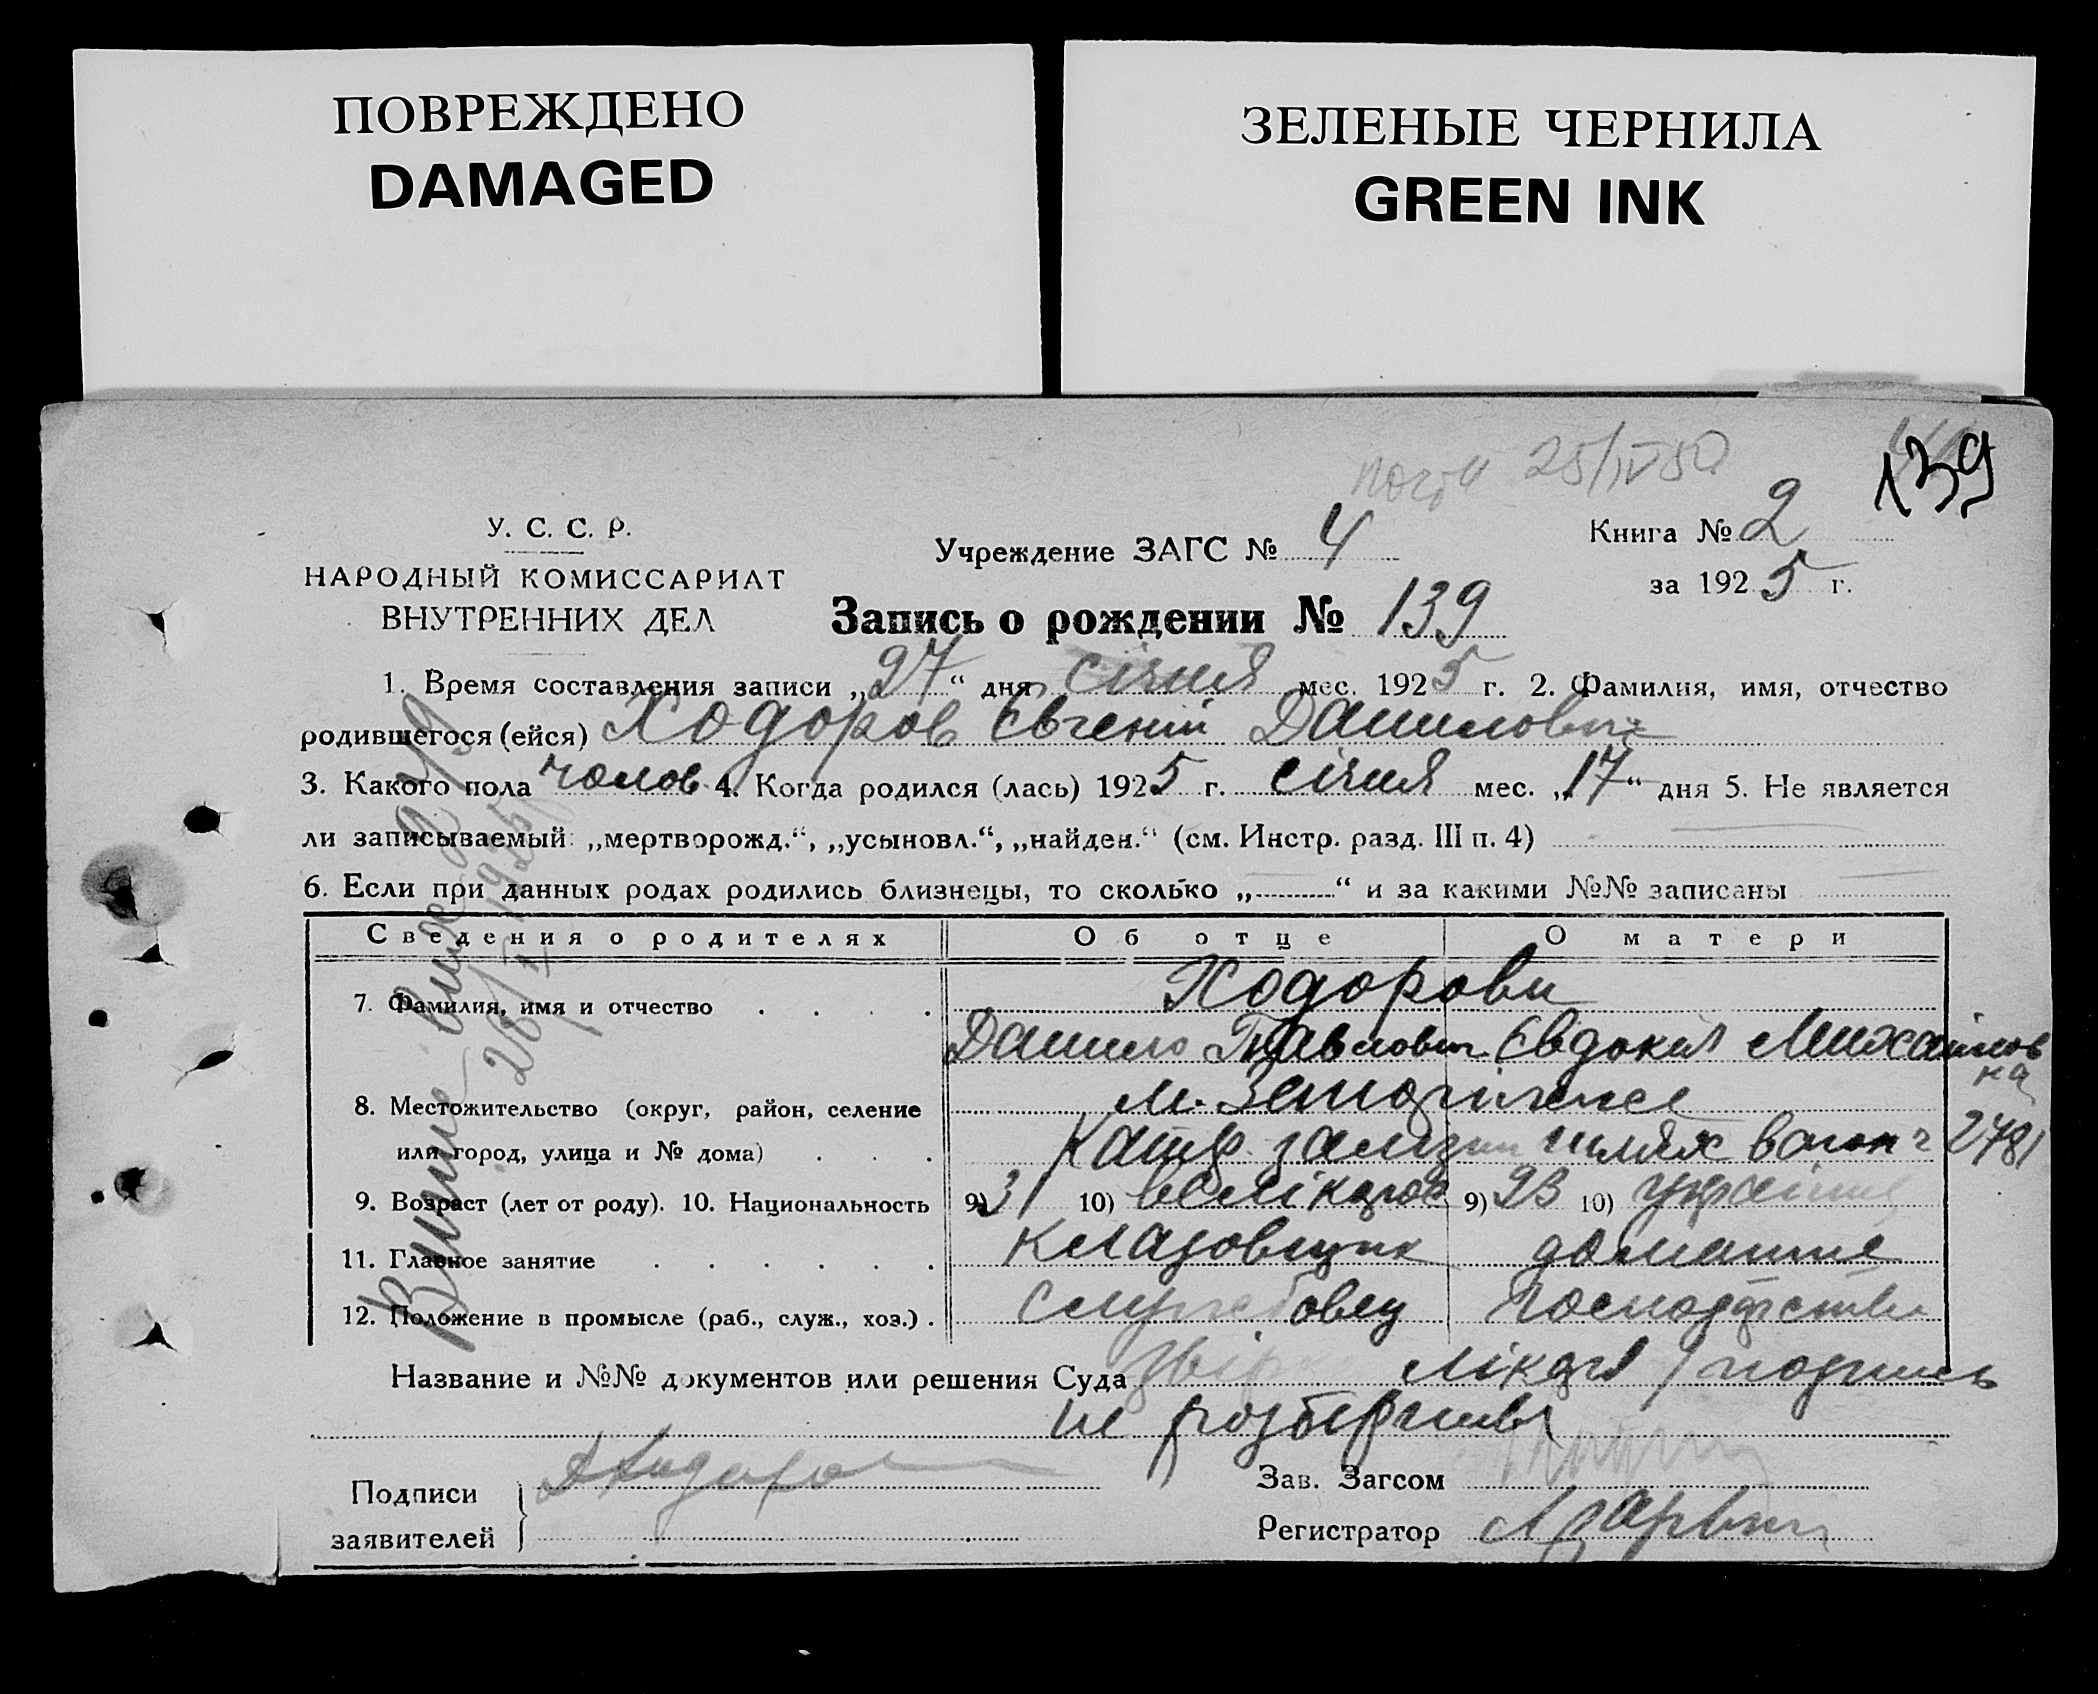 ПОВРЕЖДЕНО
DAMAGED
ЗЕЛЕНЫЕ ЧЕРНИЛА
GREEN INK
25/IV 50
139
У. С. С. Р.
НАРОДНЫЙ КОМИССАРИАТ
ВНУТРЕННИХ ДЕЛ
Учреждение ЗАГС № 4
Книга № 2
за 1925 г.
Запись о рождении № 139
1. Время составления записи „27“ дня січня мес. 1925 г. 2. Фамилия, имя, отчество
родившегося (ейся) Ходоров Євгений Данилович
3. Какого пола чолов. 4. Когда родился (лась) 1925 г. січня мес. „17“ дня 5. Не является
ли записываемый: „мертворожд.“, „усыновл.“, „найден.“ (см. Инстр. разд. III п. 4) —
6. Если при данных родах родились близнецы, то сколько „—“ и за какими №№ записаны —
Сведения о родителях Об отце О матери
7. Фамилия, имя и отчество . . . . Ходорови
Данило Павлович Євдокия Михайлов
ка
8. Местожительство (округ, район, селение
или город, улица и № дома) . . . Катер. шлях вагон 2481
9. Возраст (лет от роду). 10. Национальность 9) 31 10) велікорос 9) 23 10) українка
11. Главное занятие . . . . . . Кладовщик домашнє
12. Положение в промысле (раб., служ., хоз.) . Службовец господарство
Название и №№ документов или решения Суда лікаря / подпись
не розбірчива
Подписи
заявителей
ДХодоров
Зав. Загсом
Регистратор